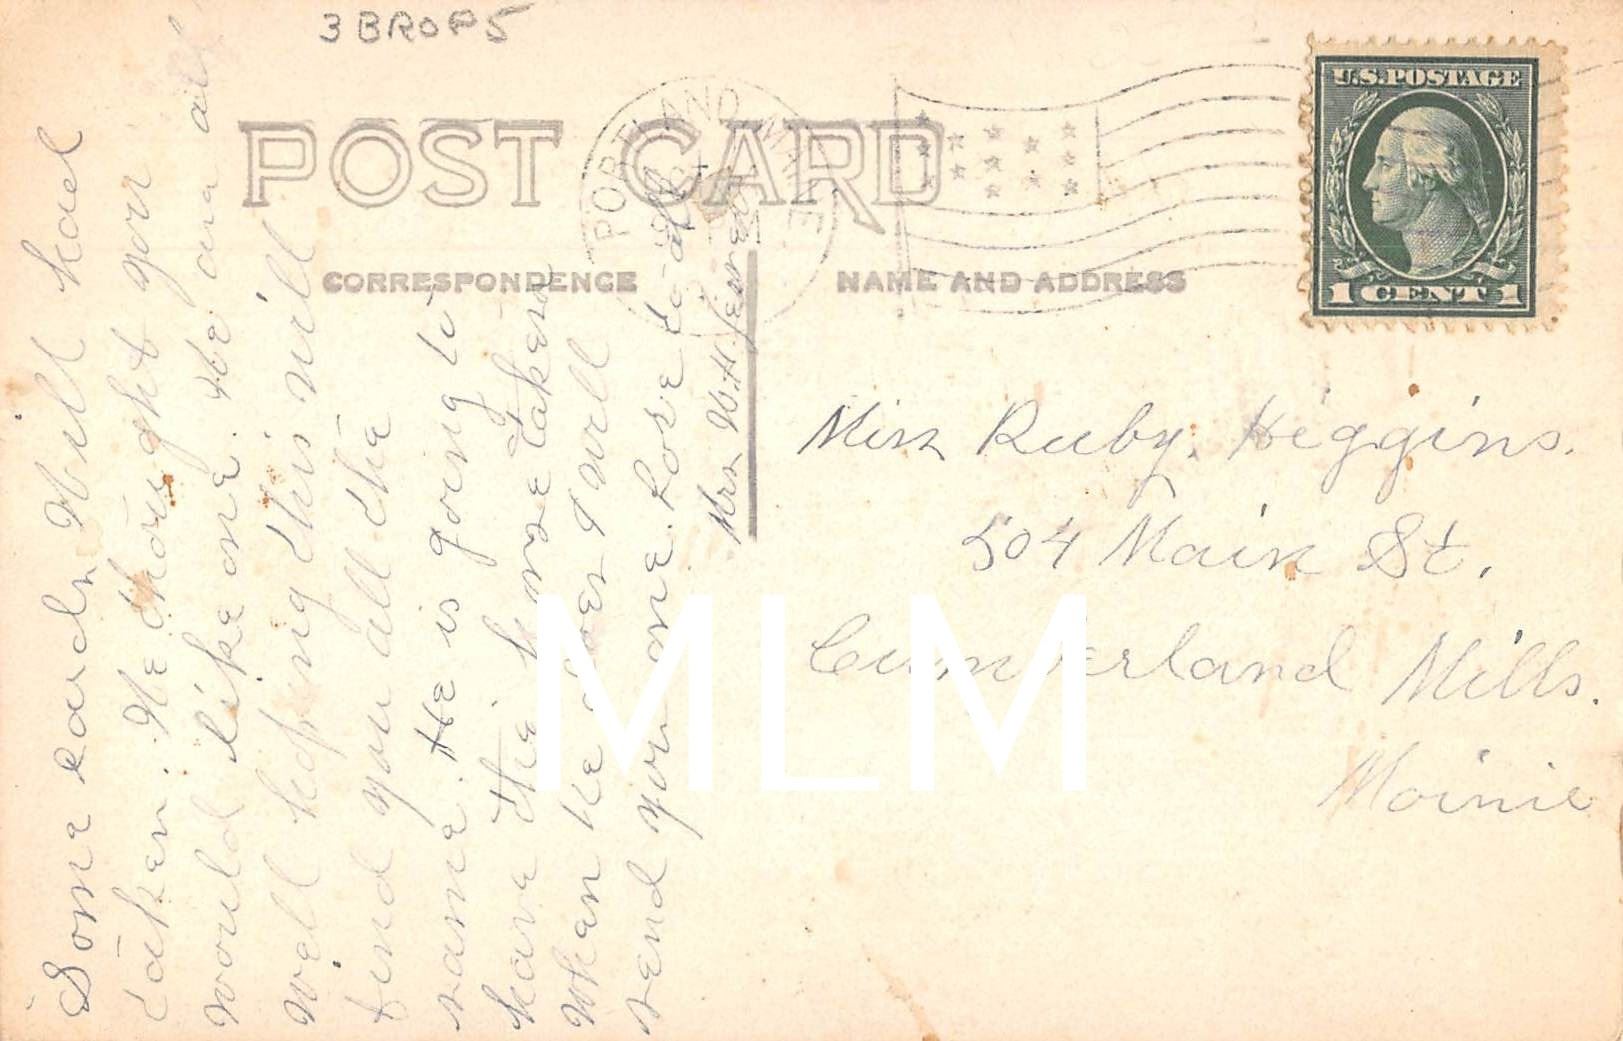 3 BROP5
POST CARD
PORTLAND MAINE
U.S. POSTAGE
1 CENT 1
CORRESPONDENCE
NAME AND ADDRESS
Some cards Will had
taken. We thought you
would like one. We are all
well hoping this will
find you all the
same. He is going to
have the house taken
when he does I will
send you one. Love to all
Mrs W.H.
Miss Ruby. Higgins.
504 Main St.
Cumberland Mills.
Mainie
MLM